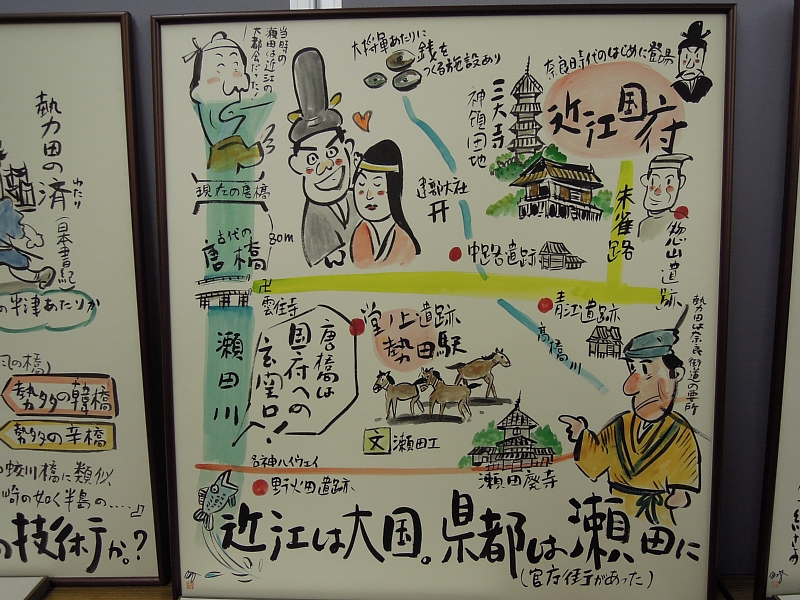 勢力田の済
(日本書紀
の半津あたりか
勢多の韓橋
勢多の辛橋
蛟川橋に類似
崎の如く半島の....♪
の技術庁か。?
当時の
瀬田は近江の
大都会だった!
大将軍あたりに
銭を
つくる施設あり
奈良時代のはじめに登場
近江国府
三大寺
神領団地
建部大社
朱雀路
惣山遺跡
現在の唐橋
古代の
唐橋
80m
中路遺跡
卍
雲住寺
青江遺跡
高橋川
堂ノ上遺跡
勢田駅
唐橋は
国府への
玄関口!
瀬田川
勢田は奈良街道の要所
文
瀬田工
名神ハイウェイ
瀬田廃寺
野火田遺跡
近江は大国。県都は瀬田に
(官庁街があった)